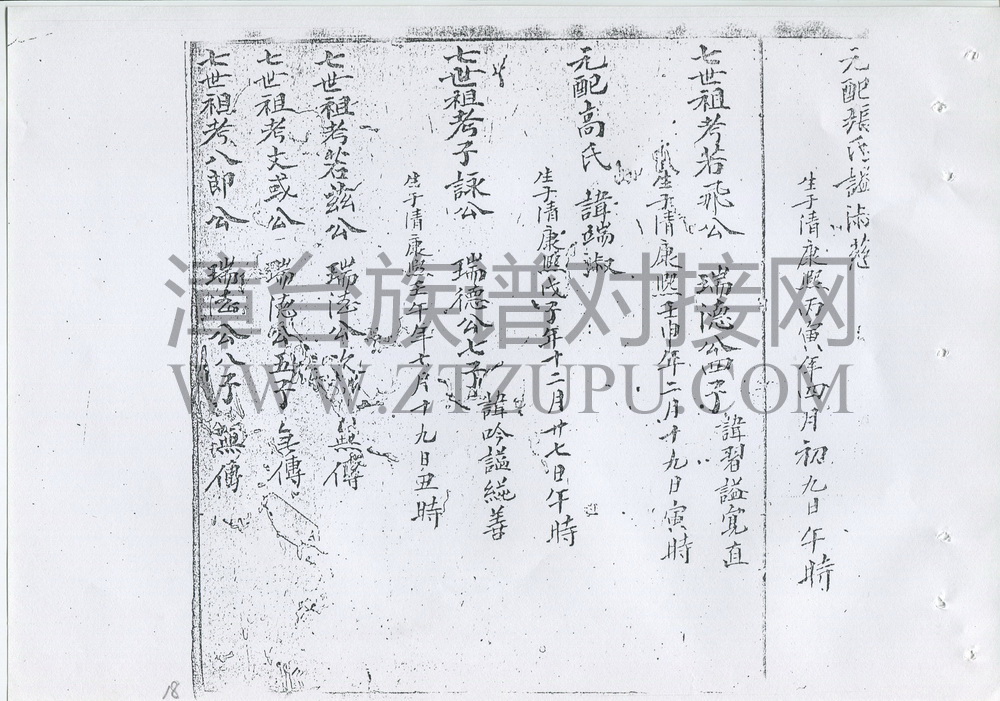 元配張氏謚淑慈
生于清康熙丙寅年四月初九日午時
七世祖考若飛公 瑞德公四子 諱習謚寬直
生于清康熙壬申年二月十九日寅時
元配高氏 諱端淑
生于清康熙戊子年十二月廿七日午時
七世祖考子詠公 瑞德公七子 諱吟謚純善
生于清康熙 年七月十九日丑時
七世祖考若 公 瑞德公 子 無傳
七世祖考文或公 瑞德公五子 無傳
七世祖考八郎公 瑞德公八子 無傳
漳台族普对接网
WWW.ZTZUPU.COM
18